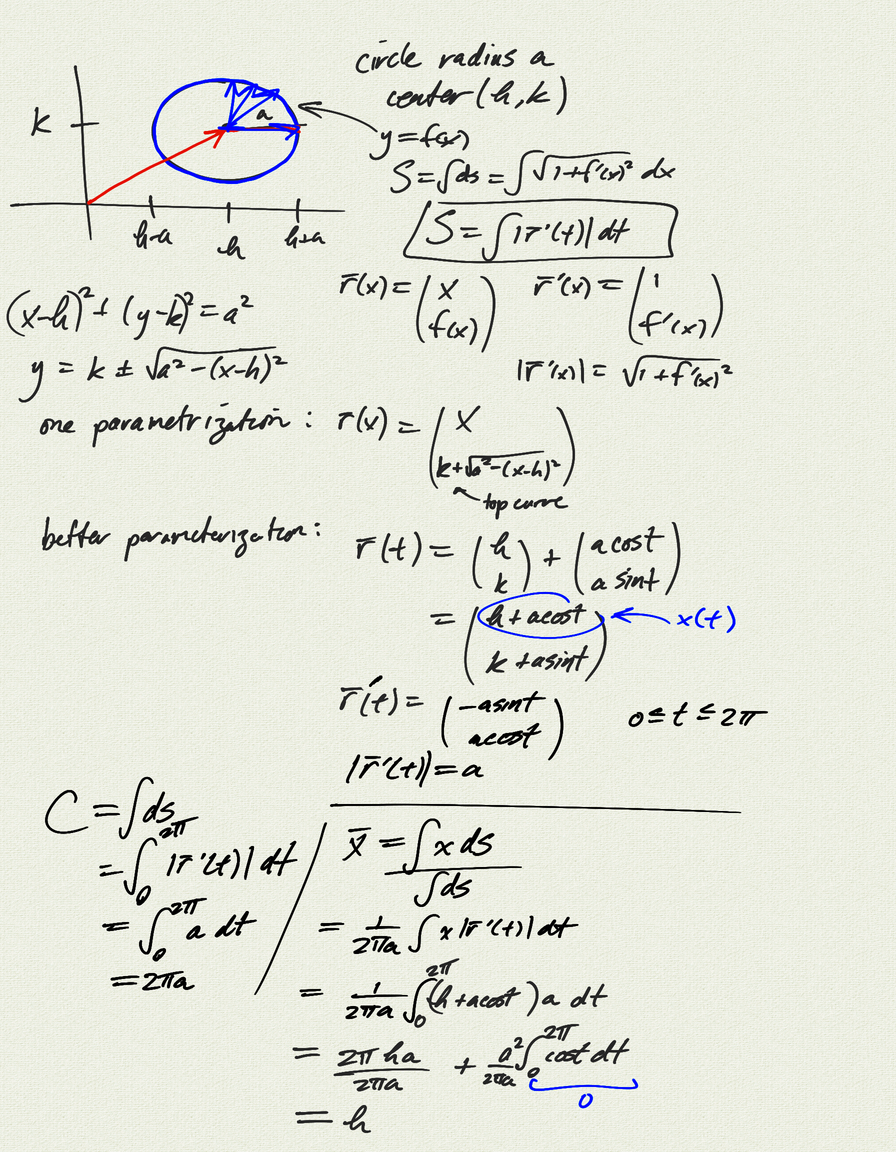 circle radius a
center (h, k)
k
a
y = f(x)
S = ∫ds = ∫√(1+f'(x)²) dx
S = ∫|r̄'(t)| dt
h-a h h+a
r̄(x) = (x f(x)) r̄'(x) = (1 f'(x))
(x-h)² + (y-k)² = a²
y = k ± √(a²-(x-h)²)
|r̄'(x)| = √(1+f'(x)²)
one parametrization: r(x) = (x k+√(a²-(x-h)²))
top curve
better parameterization: r̄(t) = (h k) + (a cost a sint)
= (h+acost k+asint) ← x(t)
r̄'(t) = (-asint acost) 0 ≤ t ≤ 2π
|r̄'(t)| = a
C = ∫ds
= ∫₀^2π |r̄'(t)| dt
= ∫₀^2π a dt
= 2πa
x̄ = ∫x ds / ∫ds
= 1/2πa ∫ x |r̄'(t)| dt
= 1/2πa ∫₀^2π (h+acost) a dt
= 2πha/2πa + a²/2πa ∫₀^2π cost dt
0
= h